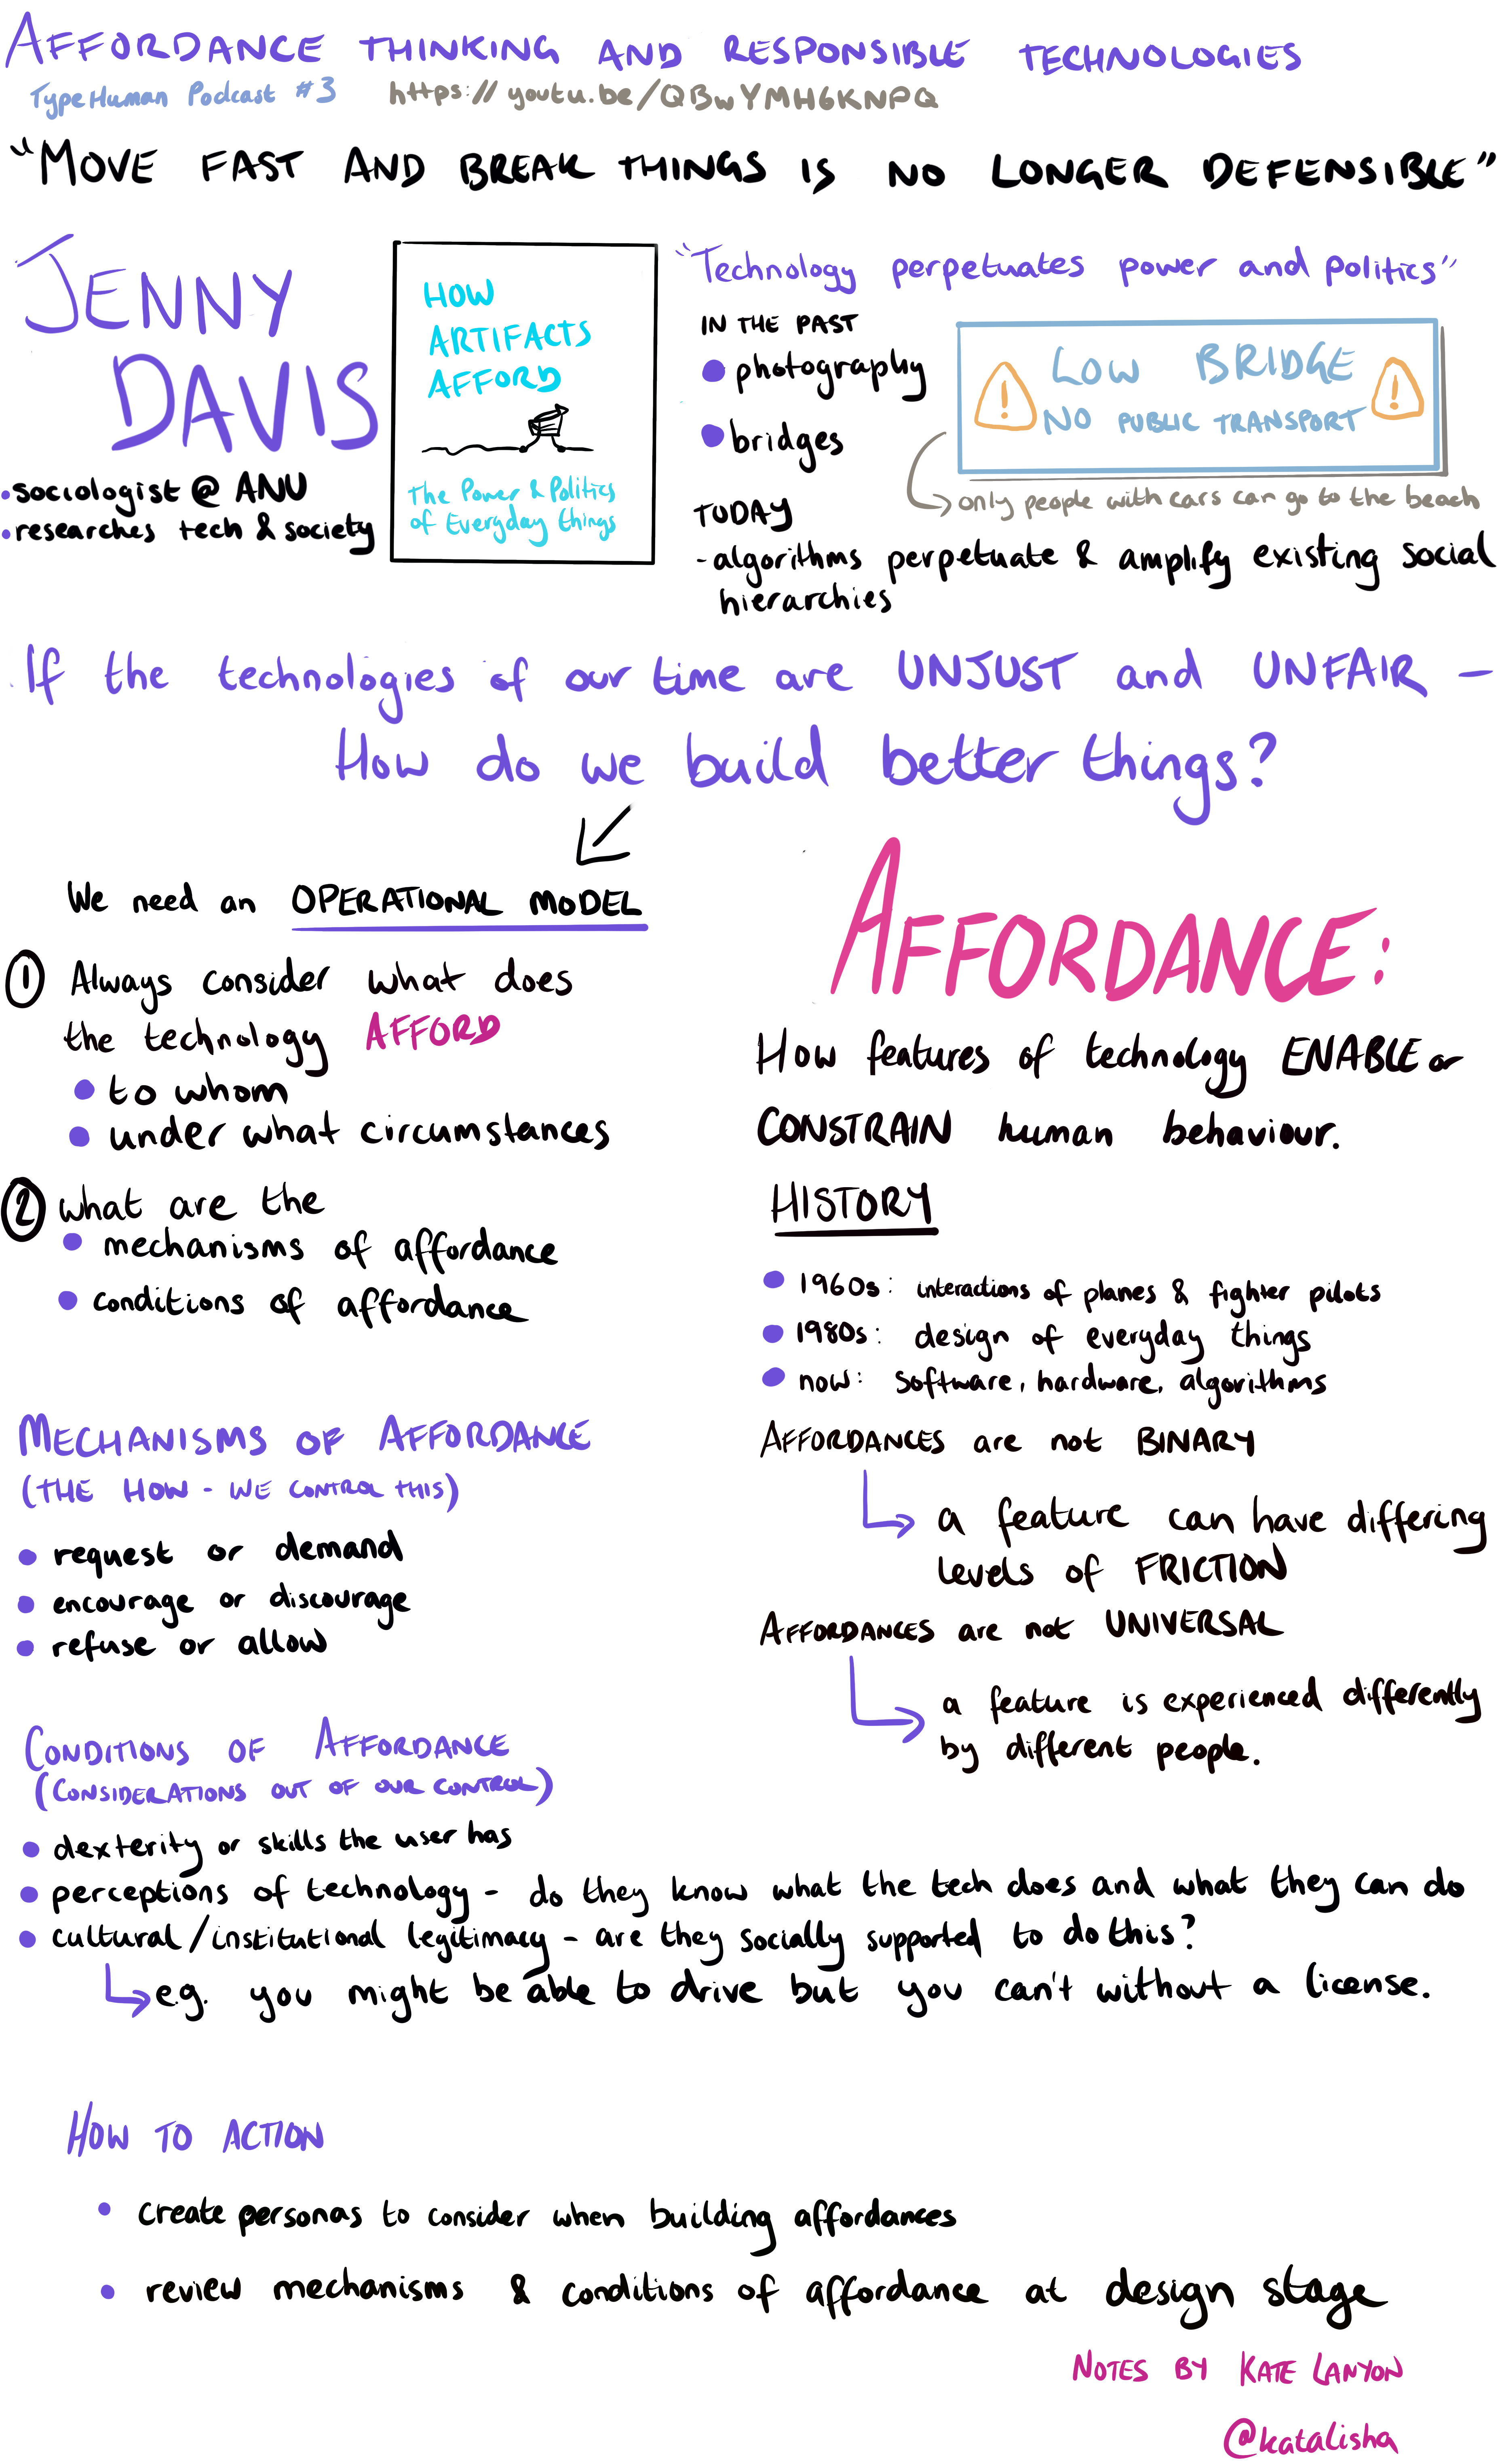 AFFORDANCE THINKING AND RESPONSIBLE TECHNOLOGIES
TypeHuman Podcast #3 https://youtu.be/QBwYMH6KNPQ
"MOVE FAST AND BREAK THINGS IS NO LONGER DEFENSIBLE"
JENNY
DAVIS
• sociologist @ ANU
• researches tech & society
HOW
ARTIFACTS
AFFORD
The Power & Politics
of Everyday things
"Technology perpetuates power and politics"
IN THE PAST
• photography
• bridges
! LOW BRIDGE !
NO PUBLIC TRANSPORT
only people with cars can go to the beach
TODAY
- algorithms perpetuate & amplify existing social
hierarchies
If the technologies of our time are UNJUST and UNFAIR -
How do we build better things?
We need an OPERATIONAL MODEL
1 Always consider what does
the technology AFFORD
• to whom
• under what circumstances
2 what are the
• mechanisms of affordance
• conditions of affordance
AFFORDANCE:
How features of technology ENABLE or
CONSTRAIN human behaviour.
HISTORY
• 1960s: interactions of planes & fighter pilots
• 1980s: design of everyday things
• now: software, hardware, algorithms
AFFORDANCES are not BINARY
a feature can have differing
levels of FRICTION
AFFORDANCES are not UNIVERSAL
a feature is experienced differently
by different people.
MECHANISMS OF AFFORDANCE
(THE HOW - WE CONTROL THIS)
• request or demand
• encourage or discourage
• refuse or allow
CONDITIONS OF AFFORDANCE
(CONSIDERATIONS OUT OF OUR CONTROL)
• dexterity or skills the user has
• perceptions of technology - do they know what the tech does and what they can do
• cultural/institutional legitimacy - are they socially supported to do this?
e.g. you might be able to drive but you can't without a license.
HOW TO ACTION
• create personas to consider when building affordances
• review mechanisms & conditions of affordance at design stage
NOTES BY KATE LANYON
@katalisha